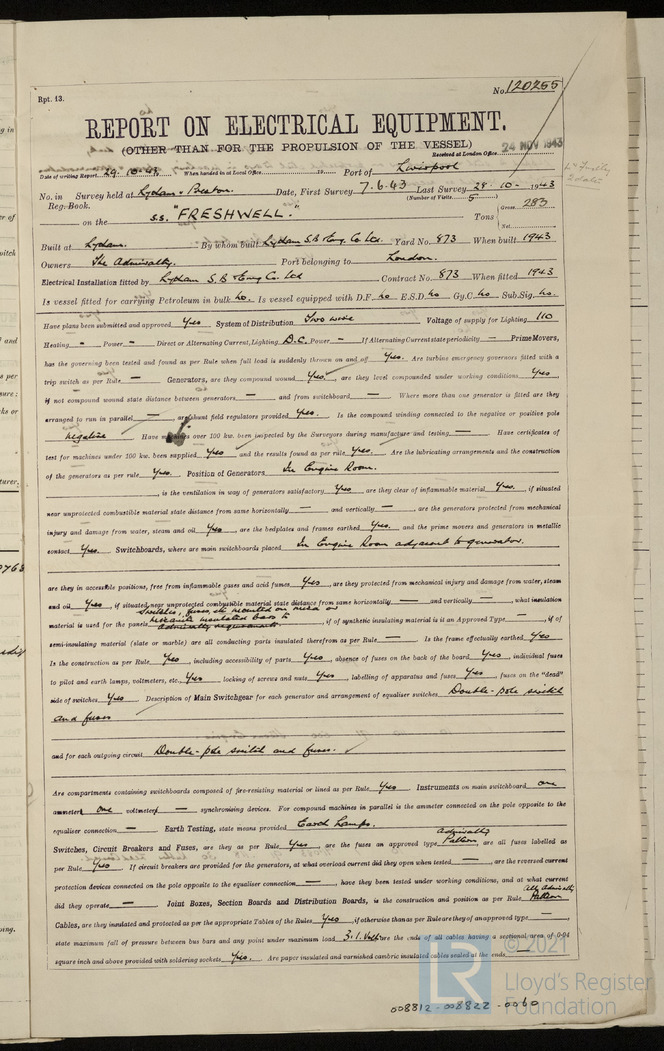 No. 120255
Rpt. 13.
REPORT ON ELECTRICAL EQUIPMENT.
(OTHER THAN FOR THE PROPULSION OF THE VESSEL)
Received at London Office 24 NOV 1943
Date of writing Report 29.10.43 When handed in at Local Office 19 Port of Liverpool
No. in Survey held at Lytham & Preston. Date, First Survey 7.6.43 Last Survey 28.10.1943
Reg. Book. (Number of Visits 5)
on the S.S. "FRESHWELL." Tons Gross 283
Net
Built at Lytham. By whom built Lytham S.B & Eng. Co Ltd. Yard No. 873 When built 1943
Owners The Admiralty. Port belonging to London.
Electrical Installation fitted by Lytham S.B & Eng Co. Ltd Contract No. 873 When fitted 1943
Is vessel fitted for carrying Petroleum in bulk No. Is vessel equipped with D.F. No E.S.D. No Gy.C. No Sub.Sig. No.
Have plans been submitted and approved Yes System of Distribution Two wire Voltage of supply for Lighting 110
Heating - Power - Direct or Alternating Current, Lighting D.C. Power - If Alternating Current state periodicity - Prime Movers,
has the governing been tested and found as per Rule when full load is suddenly thrown on and off Yes. Are turbine emergency governors fitted with a
trip switch as per Rule - Generators, are they compound wound Yes, are they level compounded under working conditions Yes
if not compound wound state distance between generators - and from switchboard - Where more than one generator is fitted are they
arranged to run in parallel - are shunt field regulators provided Yes. Is the compound winding connected to the negative or positive pole
negative Have machines over 100 kw. been inspected by the Surveyors during manufacture and testing - Have certificates of
test for machines under 100 kw. been supplied Yes and the results found as per rule Yes. Are the lubricating arrangements and the construction
of the generators as per rule Yes. Position of Generators In Engine Room.
, is the ventilation in way of generators satisfactory Yes are they clear of inflammable material Yes, if situated
near unprotected combustible material state distance from same horizontally - and vertically -, are the generators protected from mechanical
injury and damage from water, steam and oil Yes, are the bedplates and frames earthed Yes. and the prime movers and generators in metallic
contact Yes. Switchboards, where are main switchboards placed In Engine Room adjacent to generator.
are they in accessible positions, free from inflammable gases and acid fumes Yes, are they protected from mechanical injury and damage from water, steam
and oil Yes, if situated near unprotected combustible material state distance from same horizontally - and vertically -, what insulation
Switches, fuses, etc mounted on mica or
material is used for the panels insulated bars to Admiralty requirements, if of synthetic insulating material is it an Approved Type -, if of
semi-insulating material (slate or marble) are all conducting parts insulated therefrom as per Rule - Is the frame effectually earthed Yes
Is the construction as per Rule Yes, including accessibility of parts Yes, absence of fuses on the back of the board Yes, individual fuses
to pilot and earth lamps, voltmeters, etc. Yes locking of screws and nuts Yes, labelling of apparatus and fuses Yes fuses on the "dead"
side of switches Yes Description of Main Switchgear for each generator and arrangement of equaliser switches Double-pole switch
and fuses
and for each outgoing circuit Double-pole switch and fuses.
Are compartments containing switchboards composed of fire-resisting material or lined as per Rule Yes Instruments on main switchboard one
ammeters one voltmeters - synchronising devices. For compound machines in parallel is the ammeter connected on the pole opposite to the
equaliser connection - Earth Testing, state means provided Earth Lamps.
Switches, Circuit Breakers and Fuses, are they as per Rule Yes, are the fuses an approved type Admiralty Pattern, are all fuses labelled as
per Rule Yes If circuit breakers are provided for the generators, at what overload current did they open when tested -, are the reversed current
protection devices connected on the pole opposite to the equaliser connection -, have they been tested under working conditions, and at what current
did they operate - Joint Boxes, Section Boards and Distribution Boards, is the construction and position as per Rule Admiralty Pattern
Cables, are they insulated and protected as per the appropriate Tables of the Rules Yes, if otherwise than as per Rule are they of an approved type -,
state maximum fall of pressure between bus bars and any point under maximum load 3.1 Volts are the ends of all cables having a sectional area of 0.04
square inch and above provided with soldering sockets Yes. Are paper insulated and varnished cambric insulated cables sealed at the ends -
© 2021
Lloyd's Register
Foundation
LR
008812-008822-0060